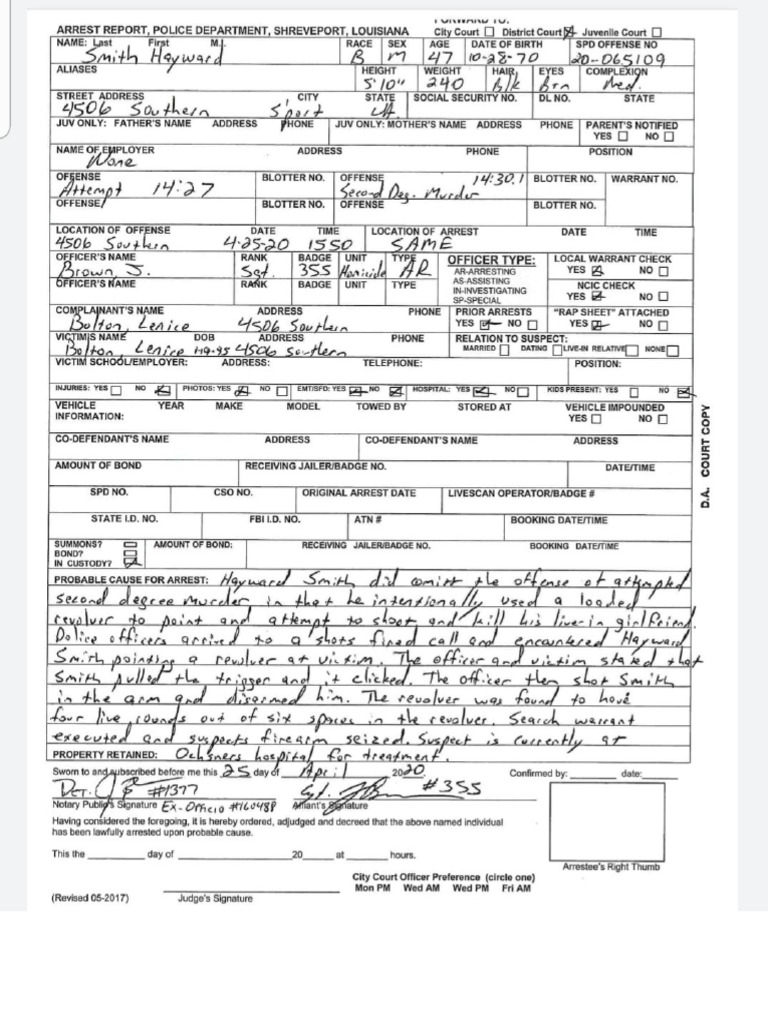 FORWARD TO:
ARREST REPORT, POLICE DEPARTMENT, SHREVEPORT, LOUISIANA City Court District Court Juvenile Court
NAME: Last First M.I. RACE SEX AGE DATE OF BIRTH SPD OFFENSE NO
Smith Hayward B M 47 10-28-70 20-065109
ALIASES HEIGHT WEIGHT HAIR EYES COMPLEXION
5'10" 240 Blk Brn Med.
STREET ADDRESS CITY STATE SOCIAL SECURITY NO. DL NO. STATE
4506 Southern S'port LA
JUV ONLY: FATHER'S NAME ADDRESS PHONE JUV ONLY: MOTHER'S NAME ADDRESS PHONE PARENT'S NOTIFIED
YES NO
NAME OF EMPLOYER ADDRESS PHONE POSITION
None
OFFENSE BLOTTER NO. OFFENSE 14:30.1 BLOTTER NO. WARRANT NO.
Attempt 14:27 Second Deg. Murder
OFFENSE BLOTTER NO. OFFENSE BLOTTER NO.
LOCATION OF OFFENSE DATE TIME LOCATION OF ARREST DATE TIME
4506 Southern 4-25-20 1550 SAME
OFFICER'S NAME RANK BADGE UNIT TYPE OFFICER TYPE: LOCAL WARRANT CHECK
Brown, J. Sgt. 355 Homicide AR AR-ARRESTING YES NO
OFFICER'S NAME RANK BADGE UNIT TYPE AS-ASSISTING NCIC CHECK
IN-INVESTIGATING YES NO
SP-SPECIAL
COMPLAINANT'S NAME ADDRESS PHONE PRIOR ARRESTS "RAP SHEET" ATTACHED
Bolton, Lenice 4506 Southern YES NO YES NO
VICTIM'S NAME DOB ADDRESS PHONE RELATION TO SUSPECT:
Bolton, Lenice 4506 Southern MARRIED DATING LIVE-IN RELATIVE NONE
VICTIM SCHOOL/EMPLOYER: ADDRESS: TELEPHONE: POSITION:
INJURIES: YES NO PHOTOS: YES NO EMT/SFD: YES NO HOSPITAL: YES NO KIDS PRESENT: YES NO
VEHICLE YEAR MAKE MODEL TOWED BY STORED AT VEHICLE IMPOUNDED
INFORMATION: YES NO
CO-DEFENDANT'S NAME ADDRESS CO-DEFENDANT'S NAME ADDRESS
AMOUNT OF BOND RECEIVING JAILER/BADGE NO. DATE/TIME
SPD NO. CSO NO. ORIGINAL ARREST DATE LIVESCAN OPERATOR/BADGE #
STATE I.D. NO. FBI I.D. NO. ATN # BOOKING DATE/TIME
SUMMONS? AMOUNT OF BOND: RECEIVING JAILER/BADGE NO. BOOKING DATE/TIME
BOND?
IN CUSTODY?
PROBABLE CAUSE FOR ARREST: Hayward Smith did comitt the offense of attempted
second degree murder in that he intentionally used a loaded
revolver to point and attempt to shoot and kill his live-in girlfriend.
Police officers arrived to a shots fired call and encountered Hayward
Smith pointing a revolver at victim. The officer and victim stated that
Smith pulled the trigger and it clicked. The officer then shot Smith
in the arm and disarmed him. The revolver was found to have
four live rounds out of six spaces in the revolver. Search warrant
executed and suspects firearm seized. Suspect is currently at
PROPERTY RETAINED: Ochsners hospital for treatment.
Sworn to and subscribed before me this 25 day of April 2020 Confirmed by: date:
DET. #1377 Sgt. #355
Notary Public's Signature Ex-Officio #160488 Affiant's Signature
Having considered the foregoing, it is hereby ordered, adjudged and decreed that the above named individual
has been lawfully arrested upon probable cause.
This the day of 20 at hours.
Arrestee's Right Thumb
City Court Officer Preference (circle one)
Mon PM Wed AM Wed PM Fri AM
(Revised 05-2017) Judge's Signature
D.A. COURT COPY